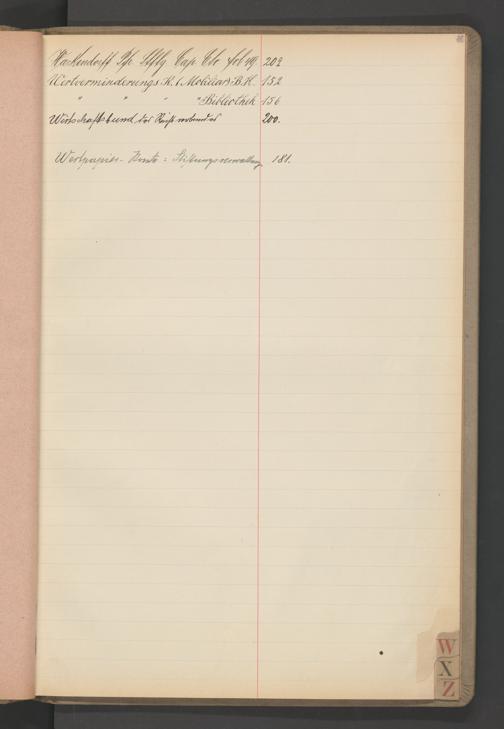 Wackendorff Ph. Stftg Cap. Cto. 202
Wertverminderungs K. (Mobiliar) B.H. 152
" " " " Bibliothek 156
Wirtschaftsbund der 200.
Wertpapier-Konto: Stiftungsverwaltung 181.
W
X
Z